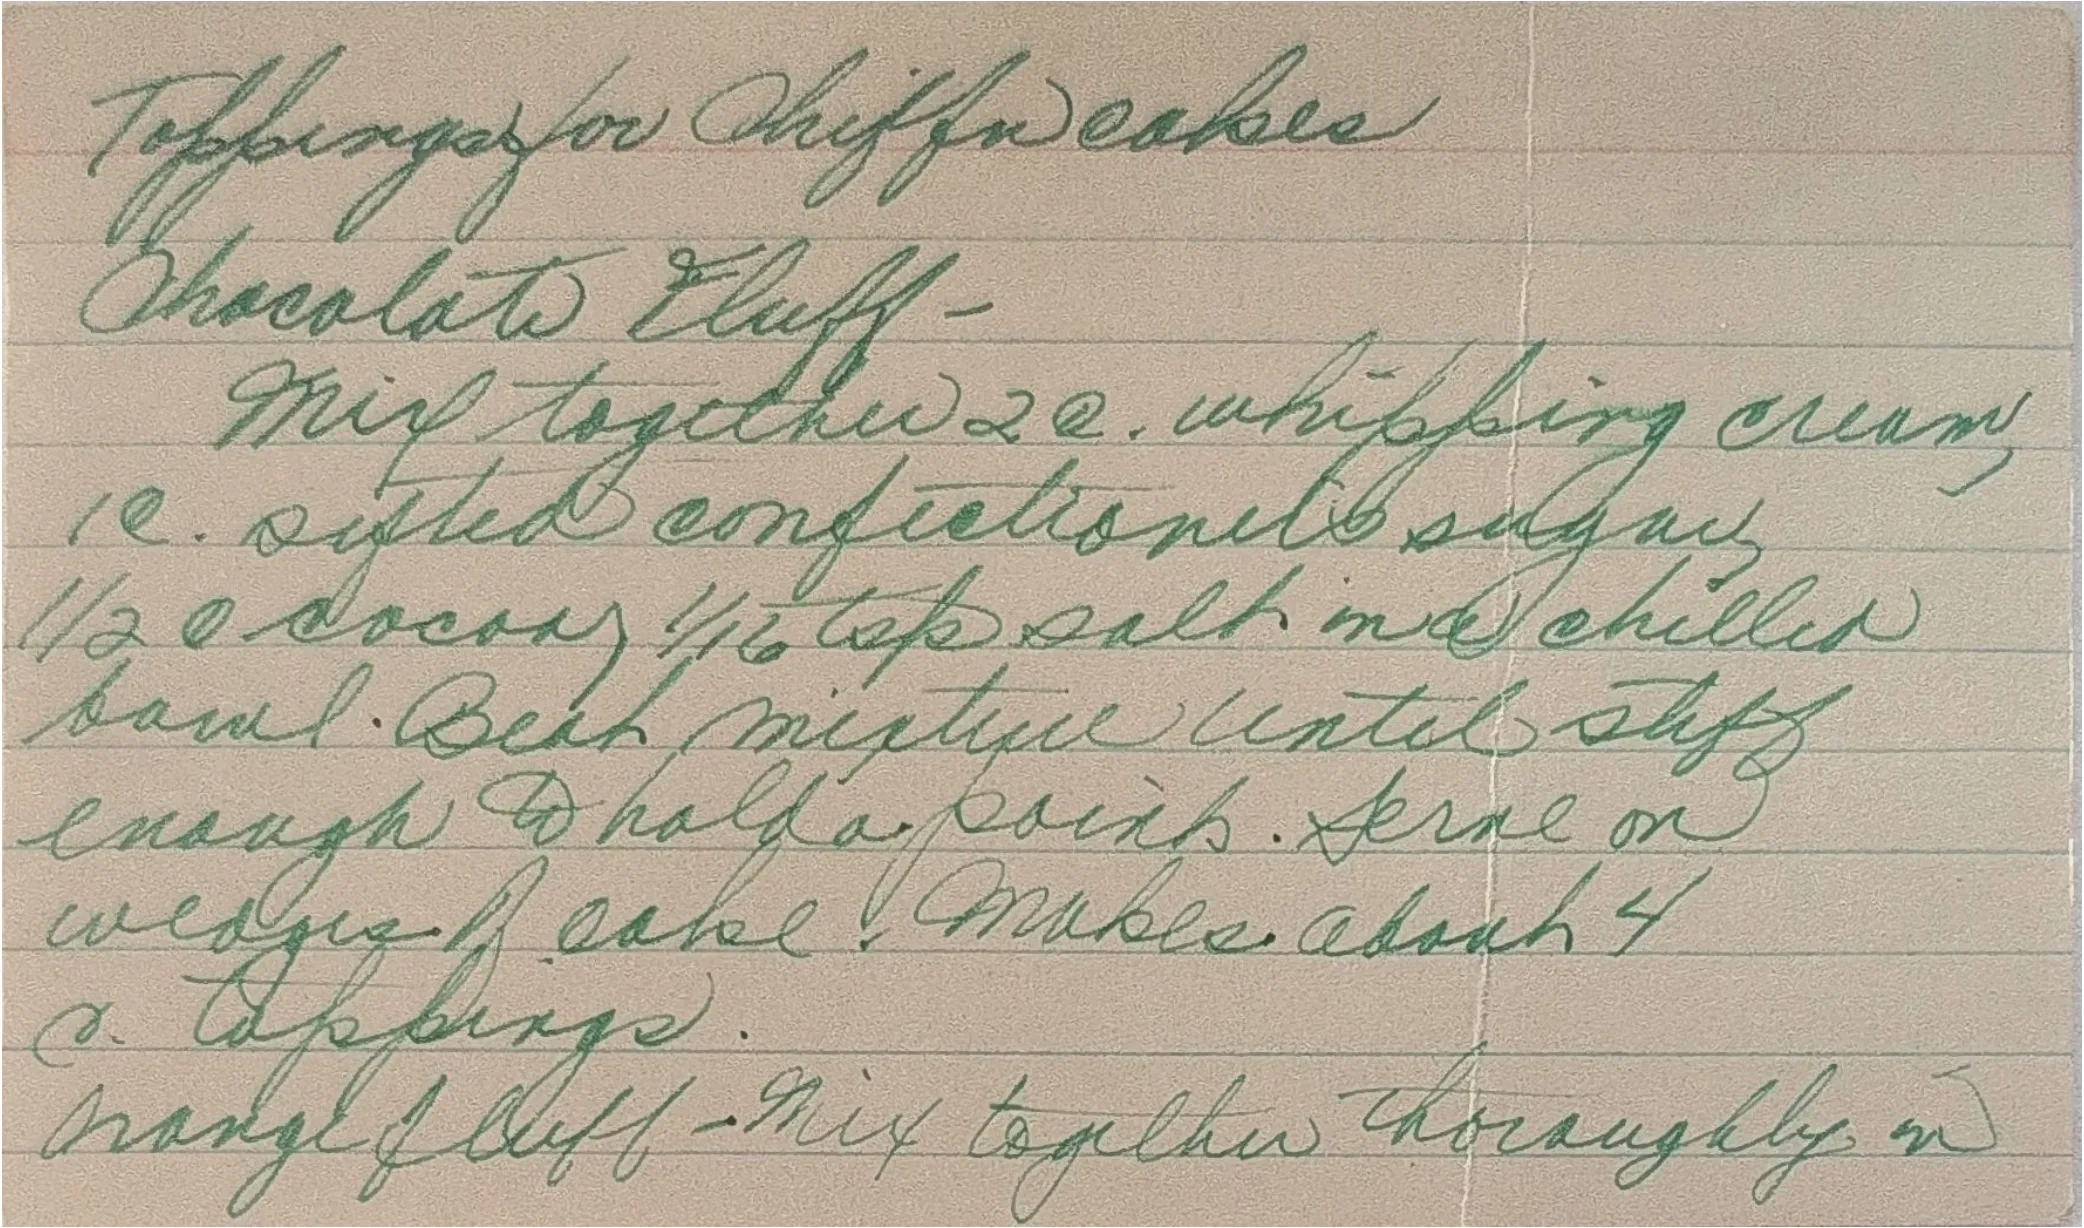 Toppings for Chiffon cakes
Chocolate Fluff -
Mix together 2 c. whipping cream,
1 c. sifted confectioner's sugar,
1/2 c cocoa, 1/16 tsp salt in a chilled
bowl. Beat mixture until stiff
enough to hold a point. Serve on
wedges of cake. Makes about 4
c. toppings.
orange fluff - Mix together thoroughly in